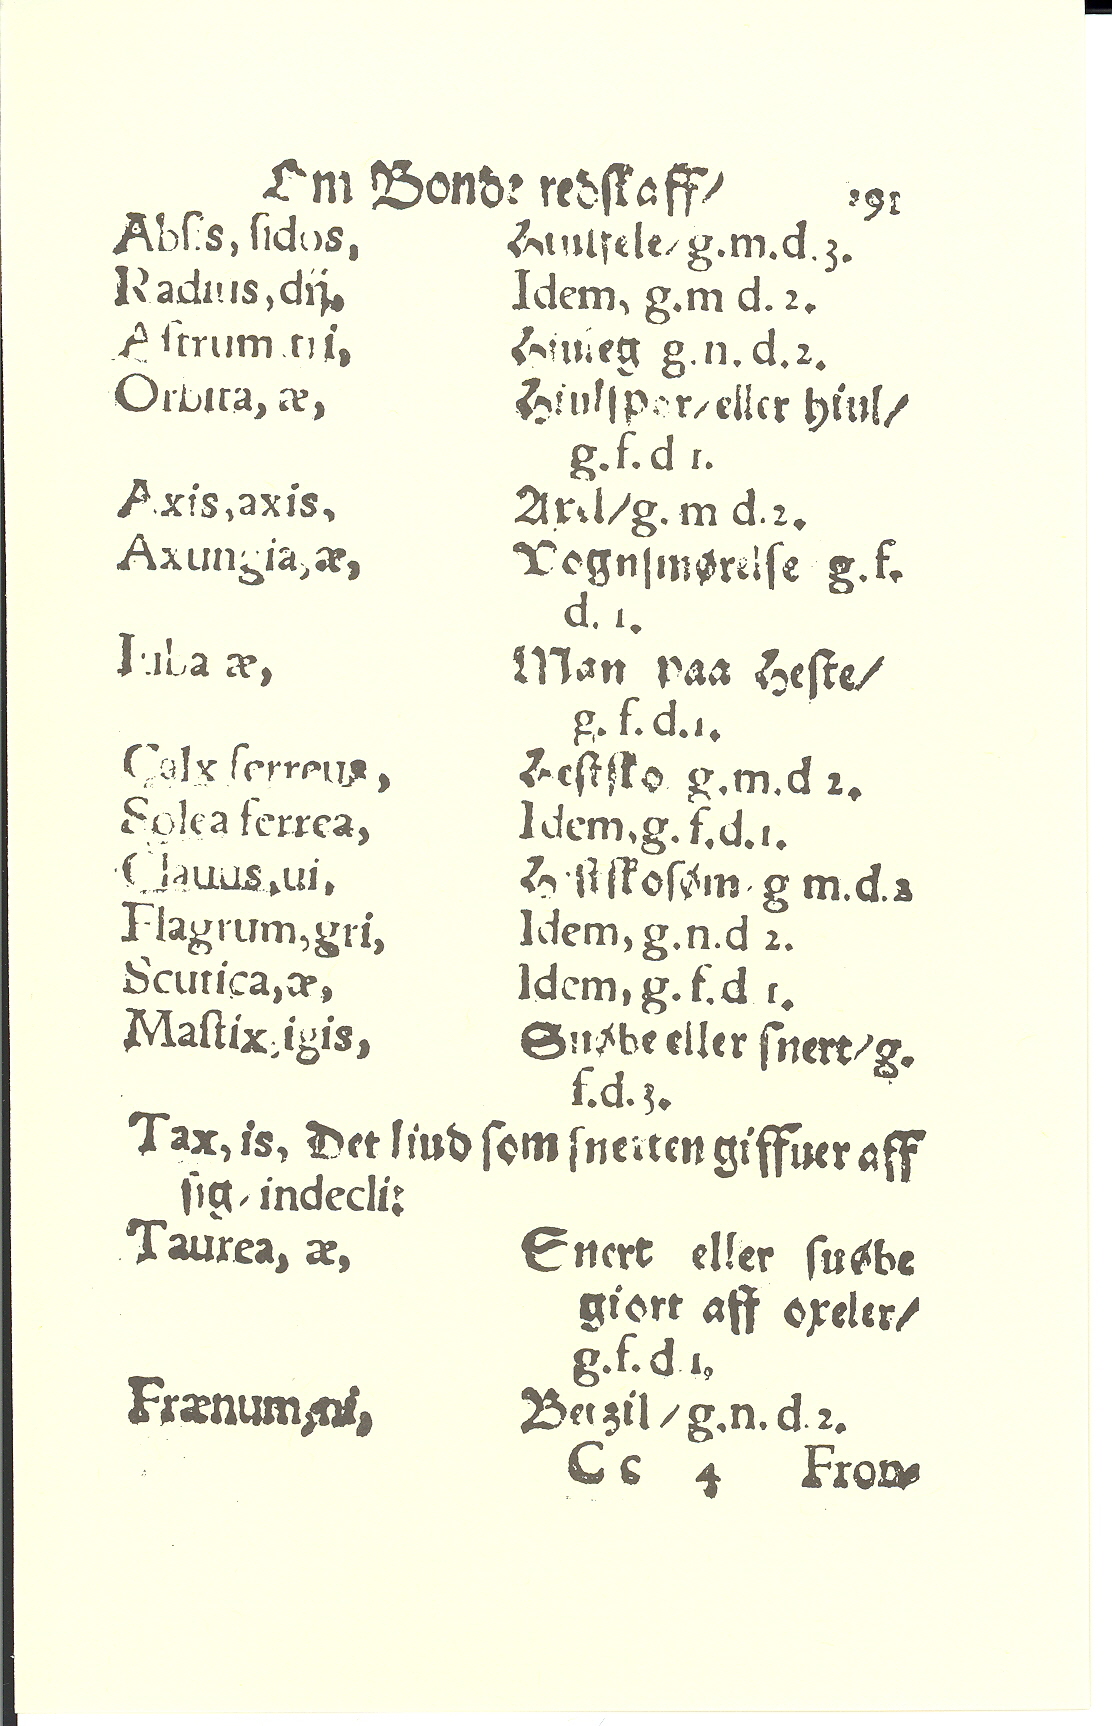 Om Bonde redſkaff/ 191
Abſis, ſidos, Hiulfele/ g.m.d.3.
Radius, dij, Idem, g.m d. 2.
Aſtrum tri, g.n. d.2.
Orbita, æ, Hiulſpor/ eller hiul/
g.f.d 1.
Axis, axis, Axel/ g. m d.2.
Axungia, æ, Vognſmørelſe g.f.
d. 1.
Iuba æ, Man paa Heſte/
g. f.d.1.
Calx ferreus, Heſtſko g.m.d 2.
Solea ferrea, Idem, g. f.d.1.
Clauus, ui, Heſtſkoſøm g m.d.2
Flagrum, gri, Idem, g.n.d 2.
Scutica, æ, Idem, g. f.d 1.
Maſtix, igis, Suøbe eller ſnert/ g.
f.d.3.
Tax, is, Det liud ſom ſnerten giffuer aff
ſig/ indecli:
Taurea, æ, Snert eller ſuøbe
giort aff oxeler/
g.f.d 1,
Frænum, ni, Beizil/ g.n. d.2.
C c 4 Fron-